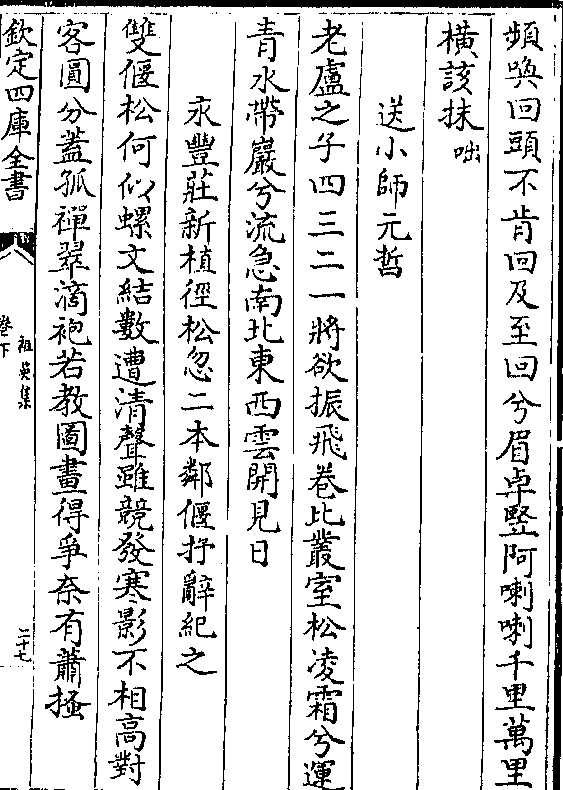 頻喚回頭不肯回及至回兮眉卓豎阿喇喇千里萬里
橫該抹咄
送小師元哲
老盧之子四三二一將欲振飛卷比叢室松凌霜兮運
青水帶巖兮流急南北東西雲開見日
永豐莊新植徑松忽二本鄰偃抒辭紀之
雙偃松何似螺文結數遭清聲雖競發寒影不相高對
客圓分蓋孤禪翠滴袍若教圖畫得爭奈有蕭搔
欽定四庫全書
祖英集
卷下
二十七